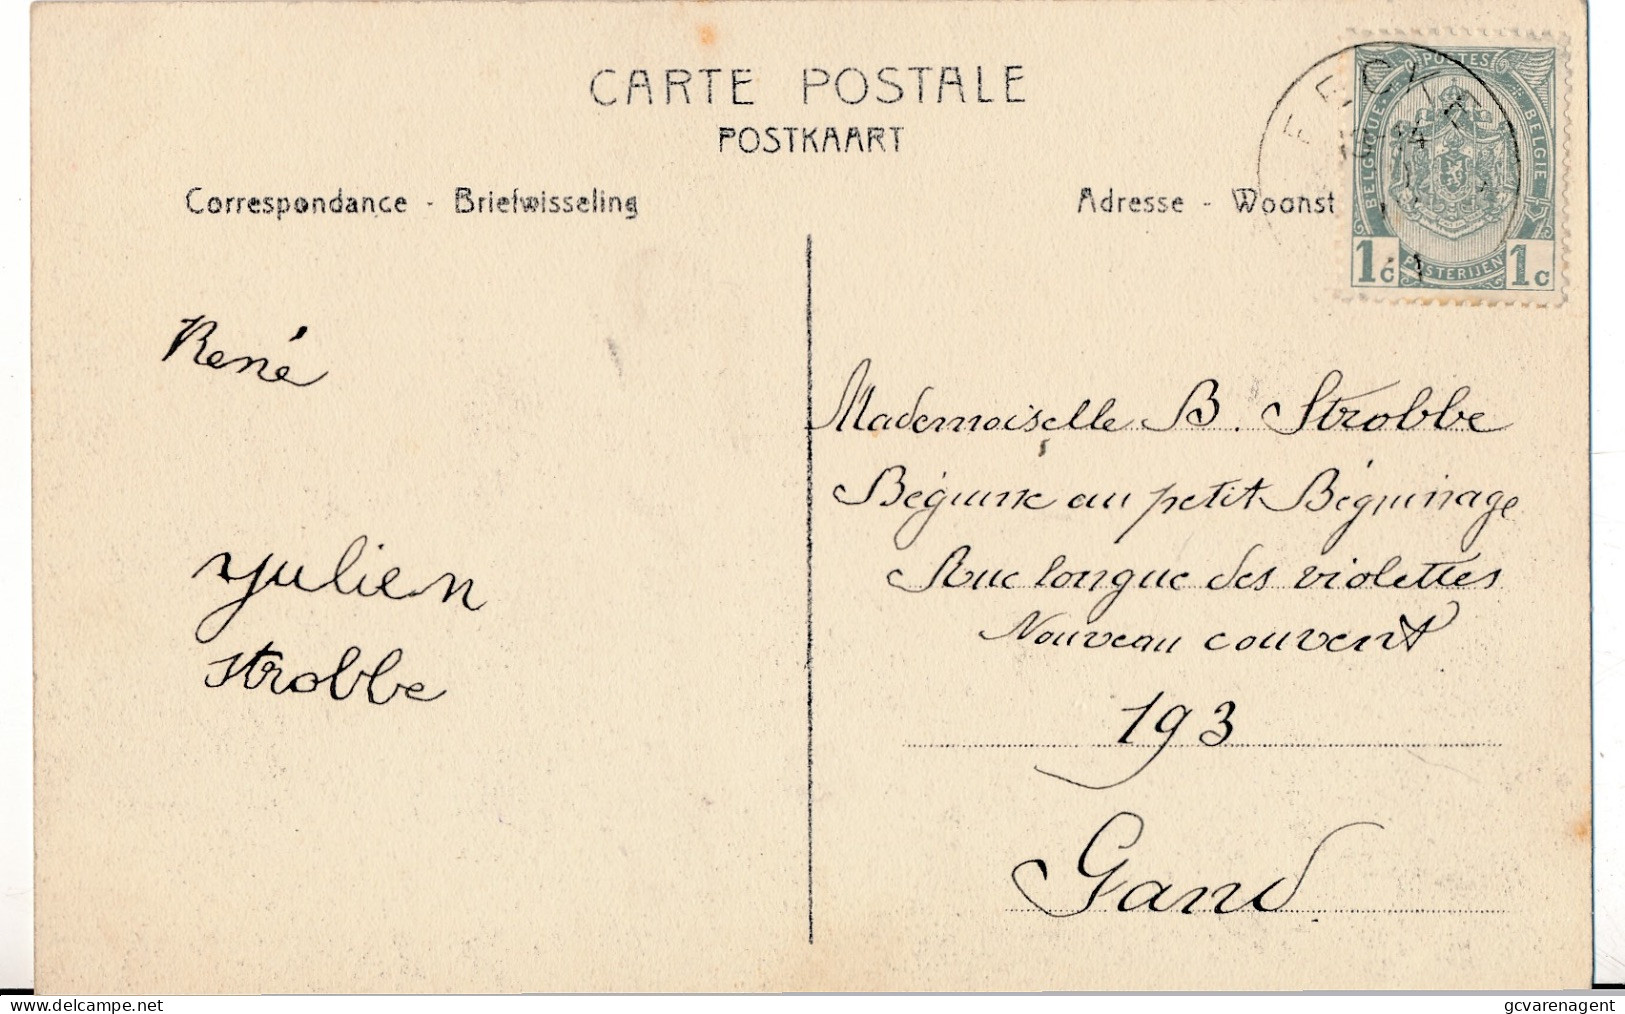 CARTE POSTALE
POSTKAART
Correspondance - Briefwisseling
Adresse - Woonst
POSTES
BELGIQUE
BELGIE
1c POSTERIJEN 1c
René
Julien
Strobbe
Mademoiselle B. Strobbe
Béguine au petit Béguinage
Rue longue des violettes
Nouveau couvent
193
Gand.
www.delcampe.net
gcvarenagent